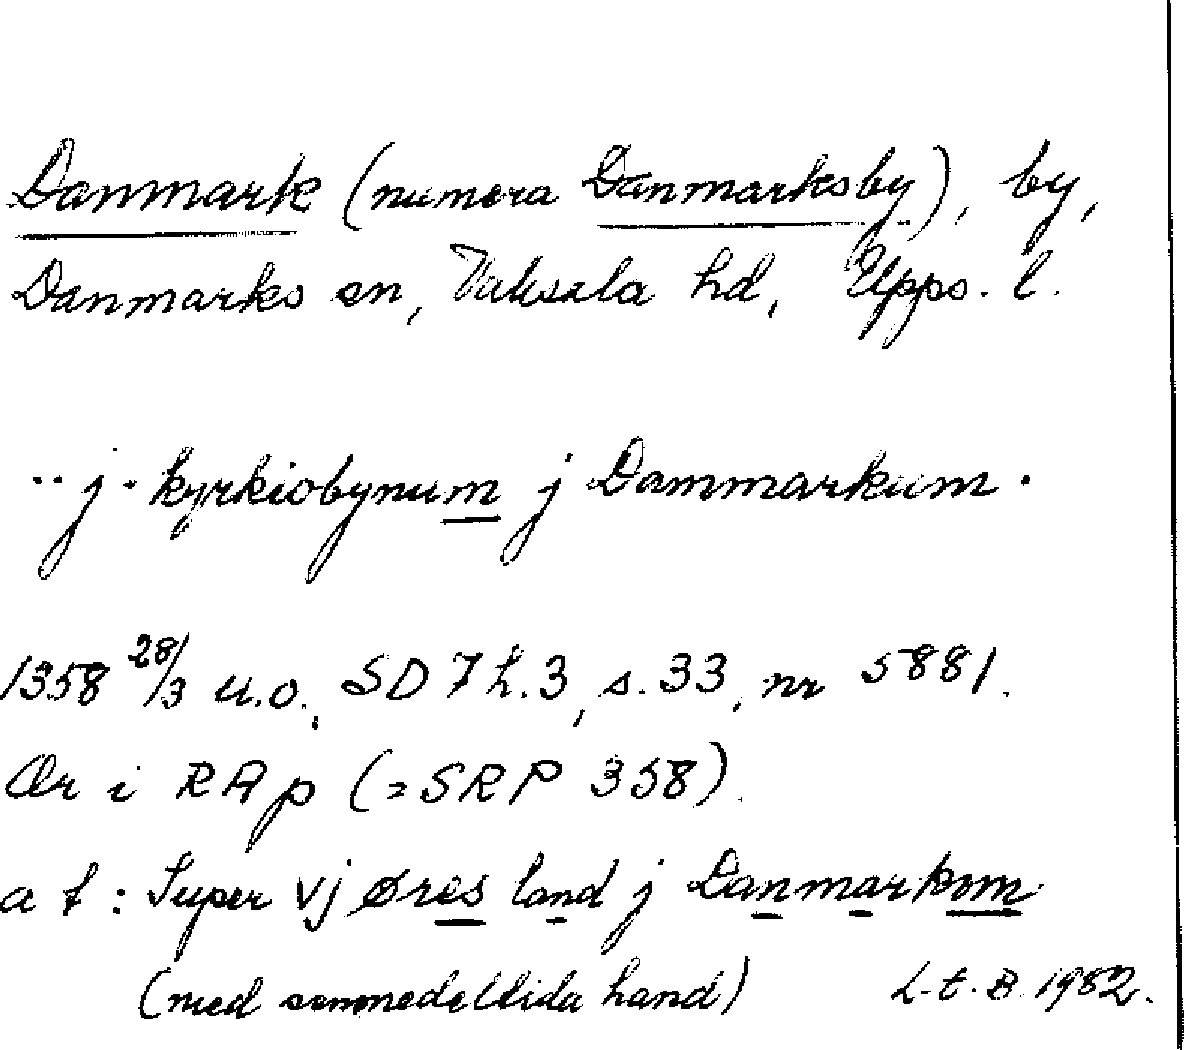 Danmark (numera Danmarksby), by,
Danmarks sn, Vaksala hd, Upps. l.
.. j. kyrkiobynum j Dammarkum.
1358 28/3 u.o., SD 7 h.3, s.33, nr 5881.
Or i RAp (=SRP 358).
a t : Super vj øres land j Danmarkom
(med senmedeltida hand) L.t.B. 1982.